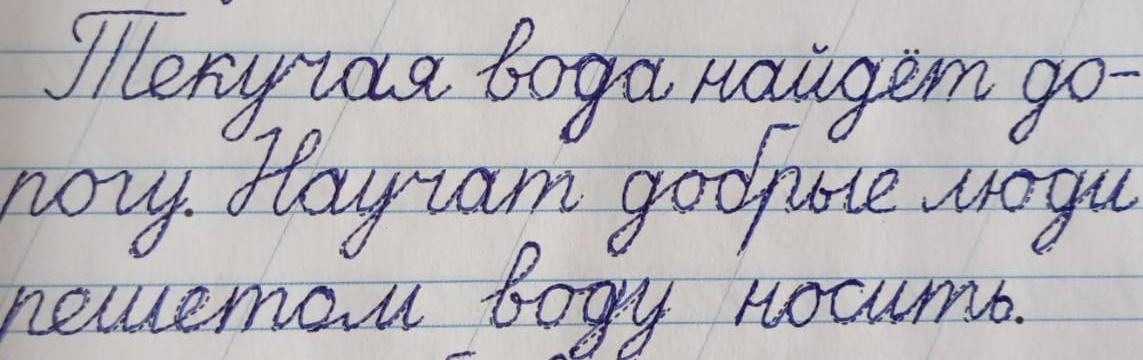 Текучая вода найдёт до-
рогу. Научат добрые люди
решетом воду носить.